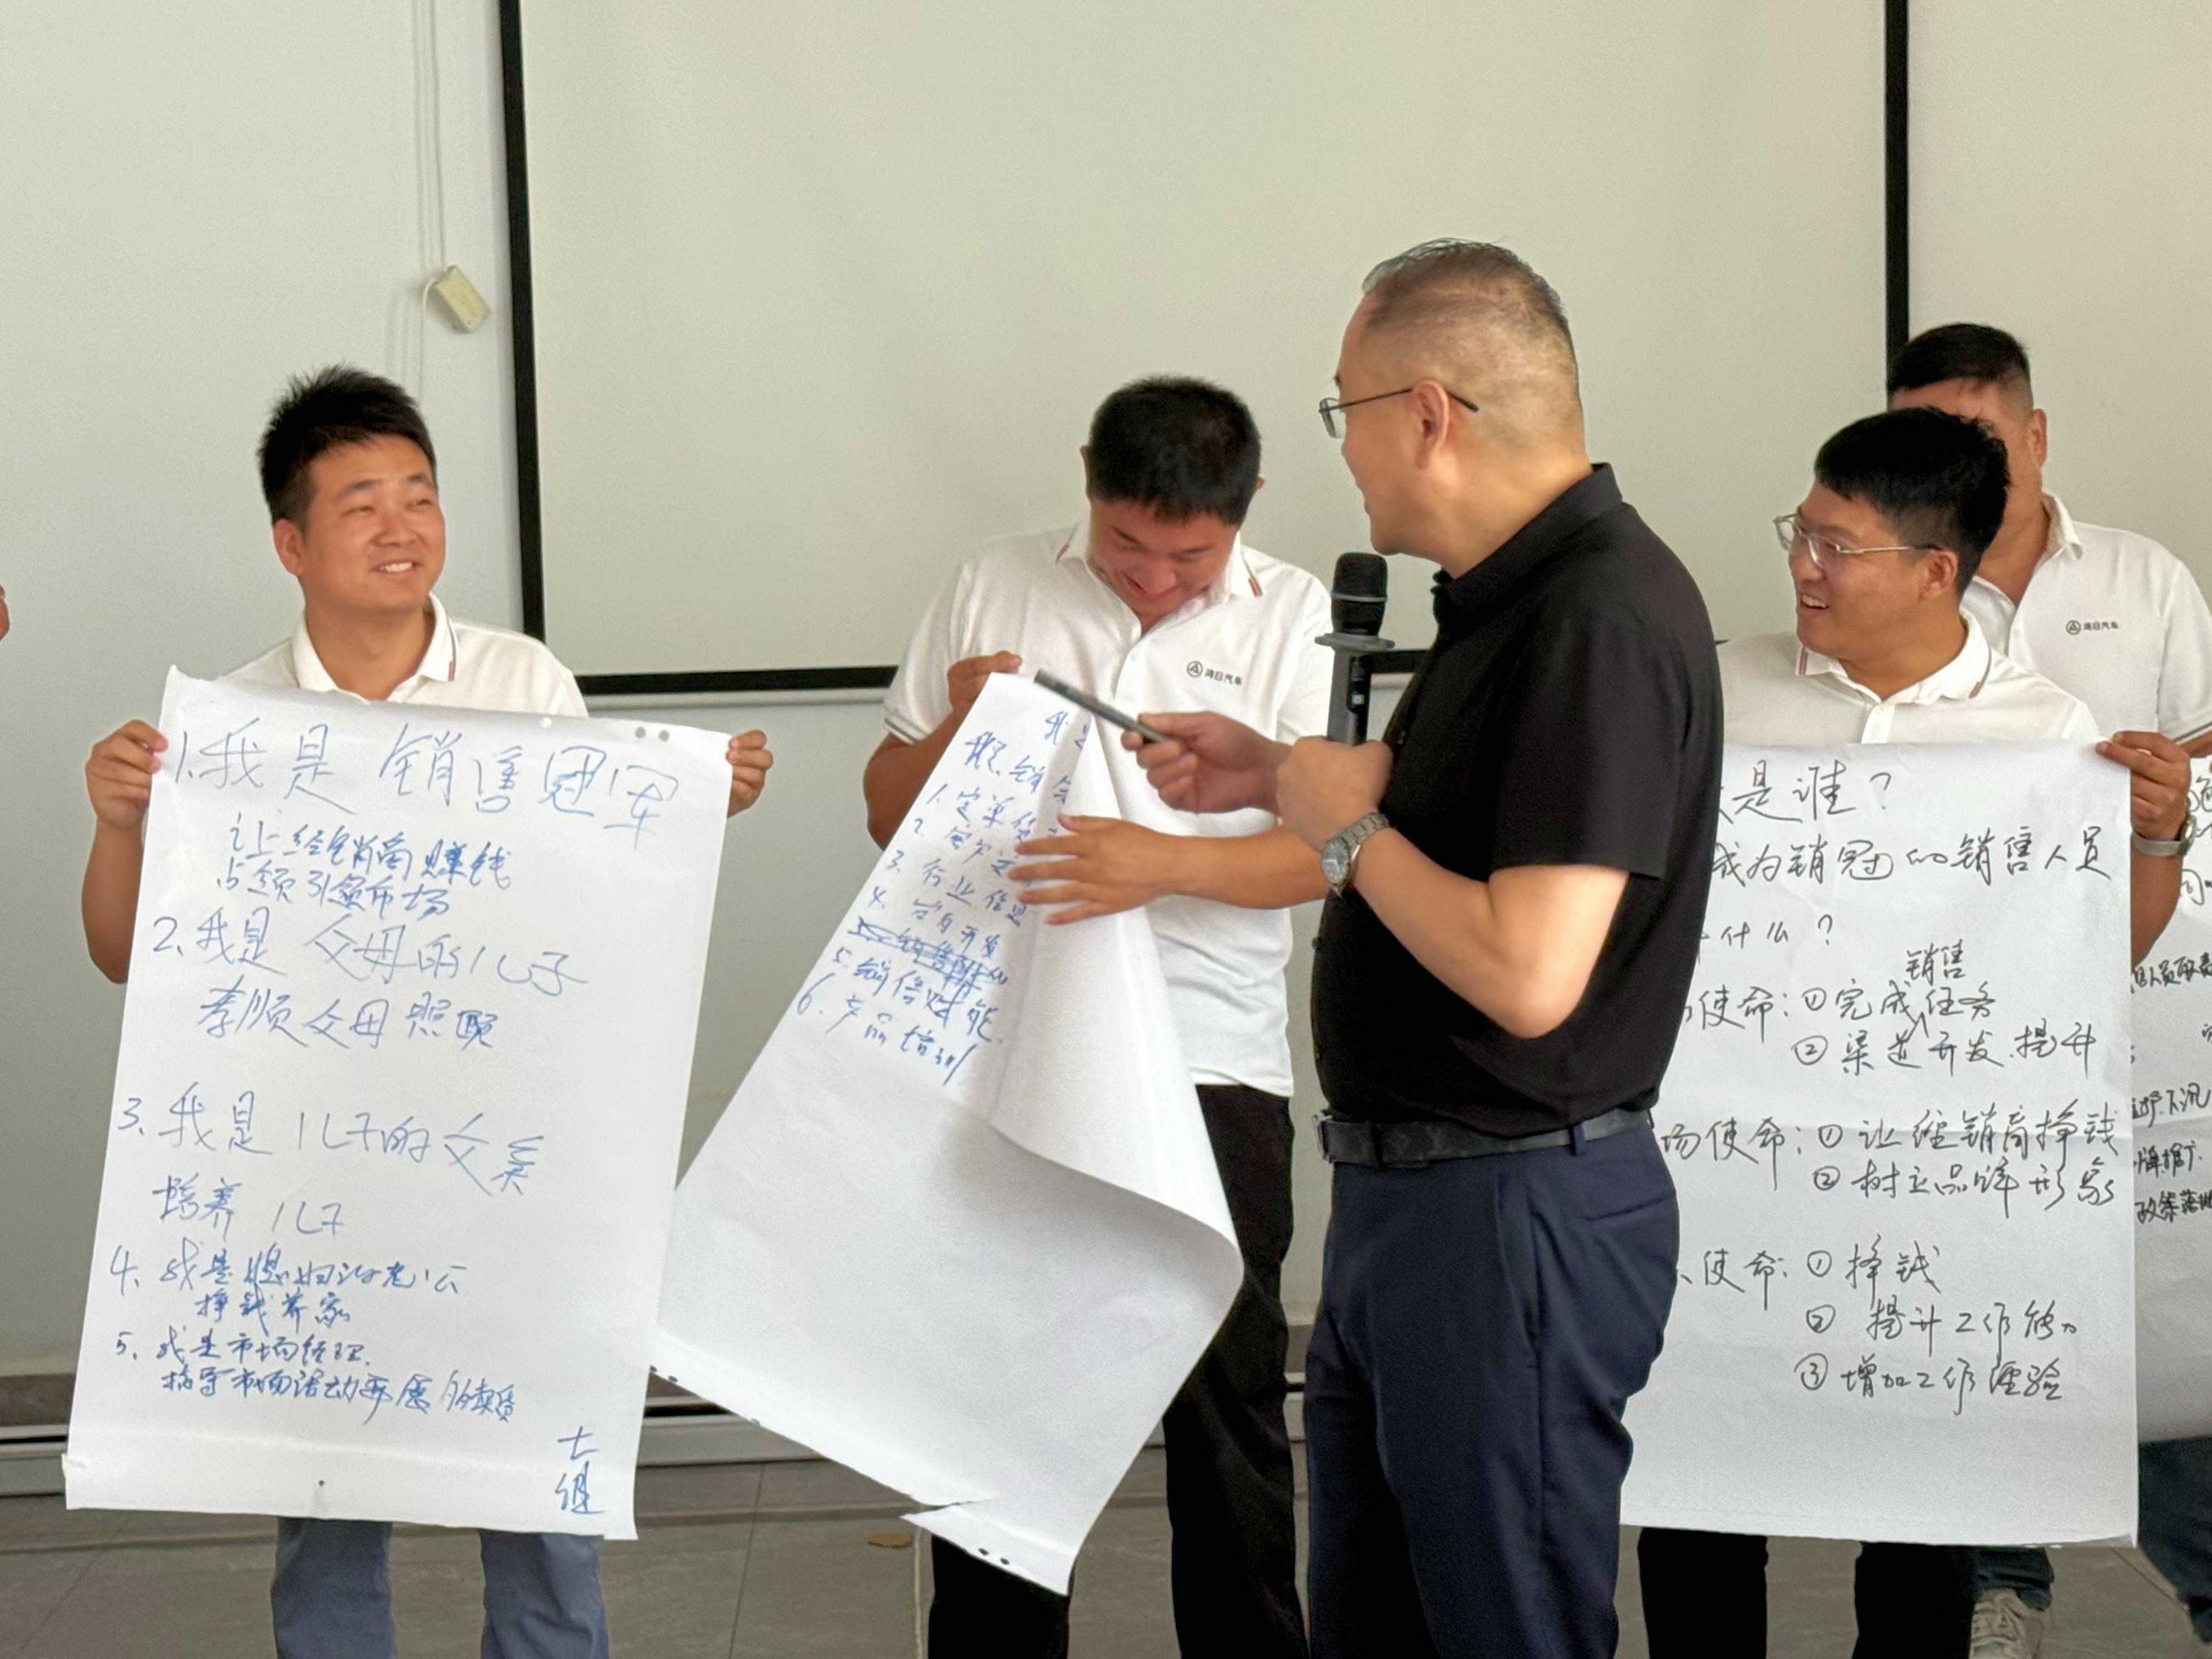 1.我是 销售冠军
让经销商赚钱
占领引领市场
2、我是 父母的儿子
孝顺父母 照顾
3、我是 儿子的父亲
培养 儿子
4、我是媳妇的老公
挣钱养家
5、我是市场经理
指导市场活动开展 多卖货
七组
1. 定单
2.
3. 行业信息
4. 客户开发
5. 销售赋能
6. 产品培训
鸿日汽车
是谁?
成为销冠的销售人员
什么?
使命:①完成销售任务
②渠道开发.提升
场使命:①让经销商挣钱
②树立品牌形象
使命:①挣钱
②提升工作能力
③增加工作经验
鸿日汽车
政策落地